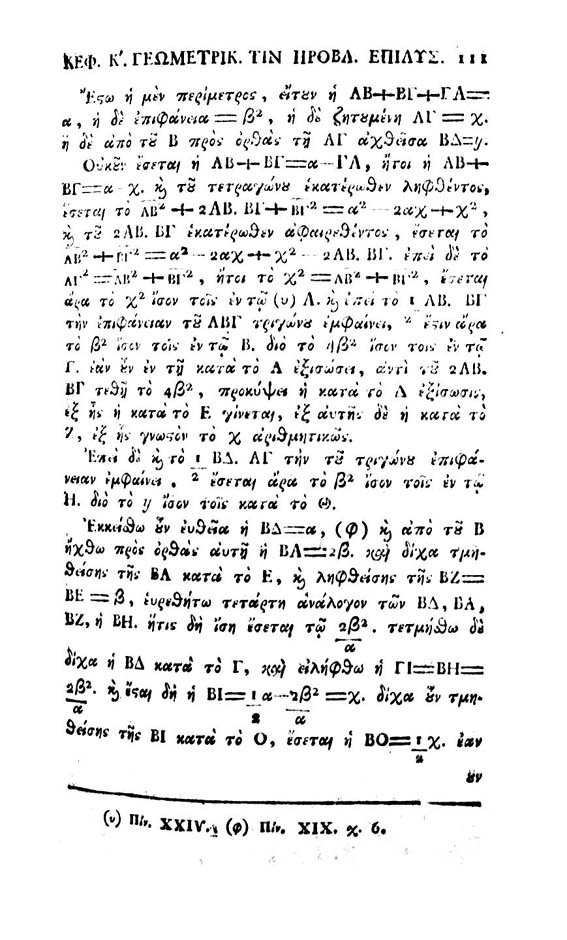 ΚΕΦ. Κ'. ΓΕΩΜΕΤΡΙΚ. ΤΙΝ ΠΡΟΒΛ. ΕΠΙΛΥΣ. 111
Ἔστω ἡ μὲν περίμετρος, εἴτουν ἡ ΑΒ+ΒΓ+ΓΑ=
α, ἡ δὲ ἐπιφάνεια = β², ἡ δὲ ζητουμένη ΑΓ = χ.
ἡ δὲ ἀπὸ τοῦ Β πρὸς ὀρθὰς τῇ ΑΓ ἀχθεῖσα ΒΔ=y.
Οὐκοῦν ἔσεται ἡ ΑΒ+ΒΓ=α-ΓΑ, ἤτοι ἡ ΑΒ+
ΒΓ=α-χ. ϗ τοῦ τετραγώνου ἑκατέρωθεν ληφθέντος,
ἔσεται τὸ ΑΒ² + 2ΑΒ. ΒΓ+ΒΓ²=α²-2αχ+χ²,
ϗ τοῦ 2ΑΒ. ΒΓ ἑκατέρωθεν ἀφαιρεθέντος, ἔσεται τὸ
ΑΒ²+ΒΓ²=α²-2αχ+χ²-2ΑΒ. ΒΓ. ἐπεὶ δὲ τὸ
ΑΓ²=ΑΒ²+ΒΓ², ἤτοι τὸ χ²=ΑΒ²+ΒΓ², ἔσεται
ἄρα τὸ χ² ἴσον τοῖς ἐν τῷ (υ) Α. ϗ ἐπεὶ τὸ 1 ΑΒ. ΒΓ
τὴν ἐπιφάνειαν τοῦ ΑΒΓ τριγώνου ἐμφαίνει, 2 ἔστιν ἄρα
τὸ β² ἴσον τοῖς ἐν τῷ Β. διὸ τὸ 4β² ἴσον τοῖς ἐν τῷ
Γ. ἐὰν οὖν ἐν τῇ κατὰ τὸ Α ἐξισώσει, ἀντὶ τοῦ 2ΑΒ.
ΒΓ τεθῇ τὸ 4β², προκύψει ἡ κατὰ τὸ Δ ἐξίσωσις,
ἐξ ἧς ἡ κατὰ τὸ Ε γίνεται, ἐξ αὐτῆς δὲ ἡ κατὰ τὸ
Ζ, ἐξ ἧς γνωστὸν τὸ χ ἀριθμητικῶς.
Ἐπεὶ δὲ ϗ τὸ 1 ΒΔ. ΑΓ τὴν τοῦ τριγώνου ἐπιφά-
νειαν ἐμφαίνει, 2 ἔσεται ἄρα τὸ β² ἴσον τοῖς ἐν τῷ
Η. διὸ τὸ y ἴσον τοῖς κατὰ τὸ Θ.
Ἐκκείσθω οὖν εὐθεῖα ἡ ΒΔ=α, (φ) ϗ ἀπὸ τοῦ Β
ἤχθω πρὸς ὀρθὰς αὐτῇ ἡ ΒΑ=2β. καὶ δίχα τμη-
θείσης τῆς ΒΑ κατὰ τὸ Ε, ϗ ληφθείσης τῆς ΒΖ=
ΒΕ=β, εὑρεθήτω τετάρτη ἀνάλογον τῶν ΒΔ, ΒΑ,
ΒΖ, ἡ ΒΗ. ἥτις δὴ ἴση ἔσεται τῷ 2β². τετμήσθω δὲ
α
δίχα ἡ ΒΔ κατὰ τὸ Γ, καὶ εἰλήφθω ἡ ΓΙ=ΒΗ=
2β². ϗ ἔσται δὴ ἡ ΒΙ=1 α-2β²=χ. δίχα οὖν τμη-
α 2 α
θείσης τῆς ΒΙ κατὰ τὸ Ο, ἔσεται ἡ ΒΟ=1 χ. ἐὰν
2
οὖν
(υ) Πίν. XXIV. (φ) Πίν. XIX. χ. 6.